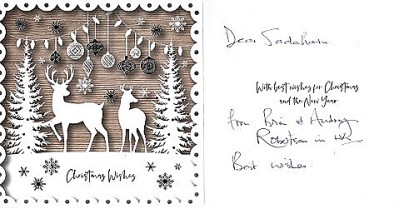 Christmas Wishes
Dear Sadaharu
With best wishes for Christmas
and the New Year
from Brian & Audrey
Robertson in UK
Best wishes